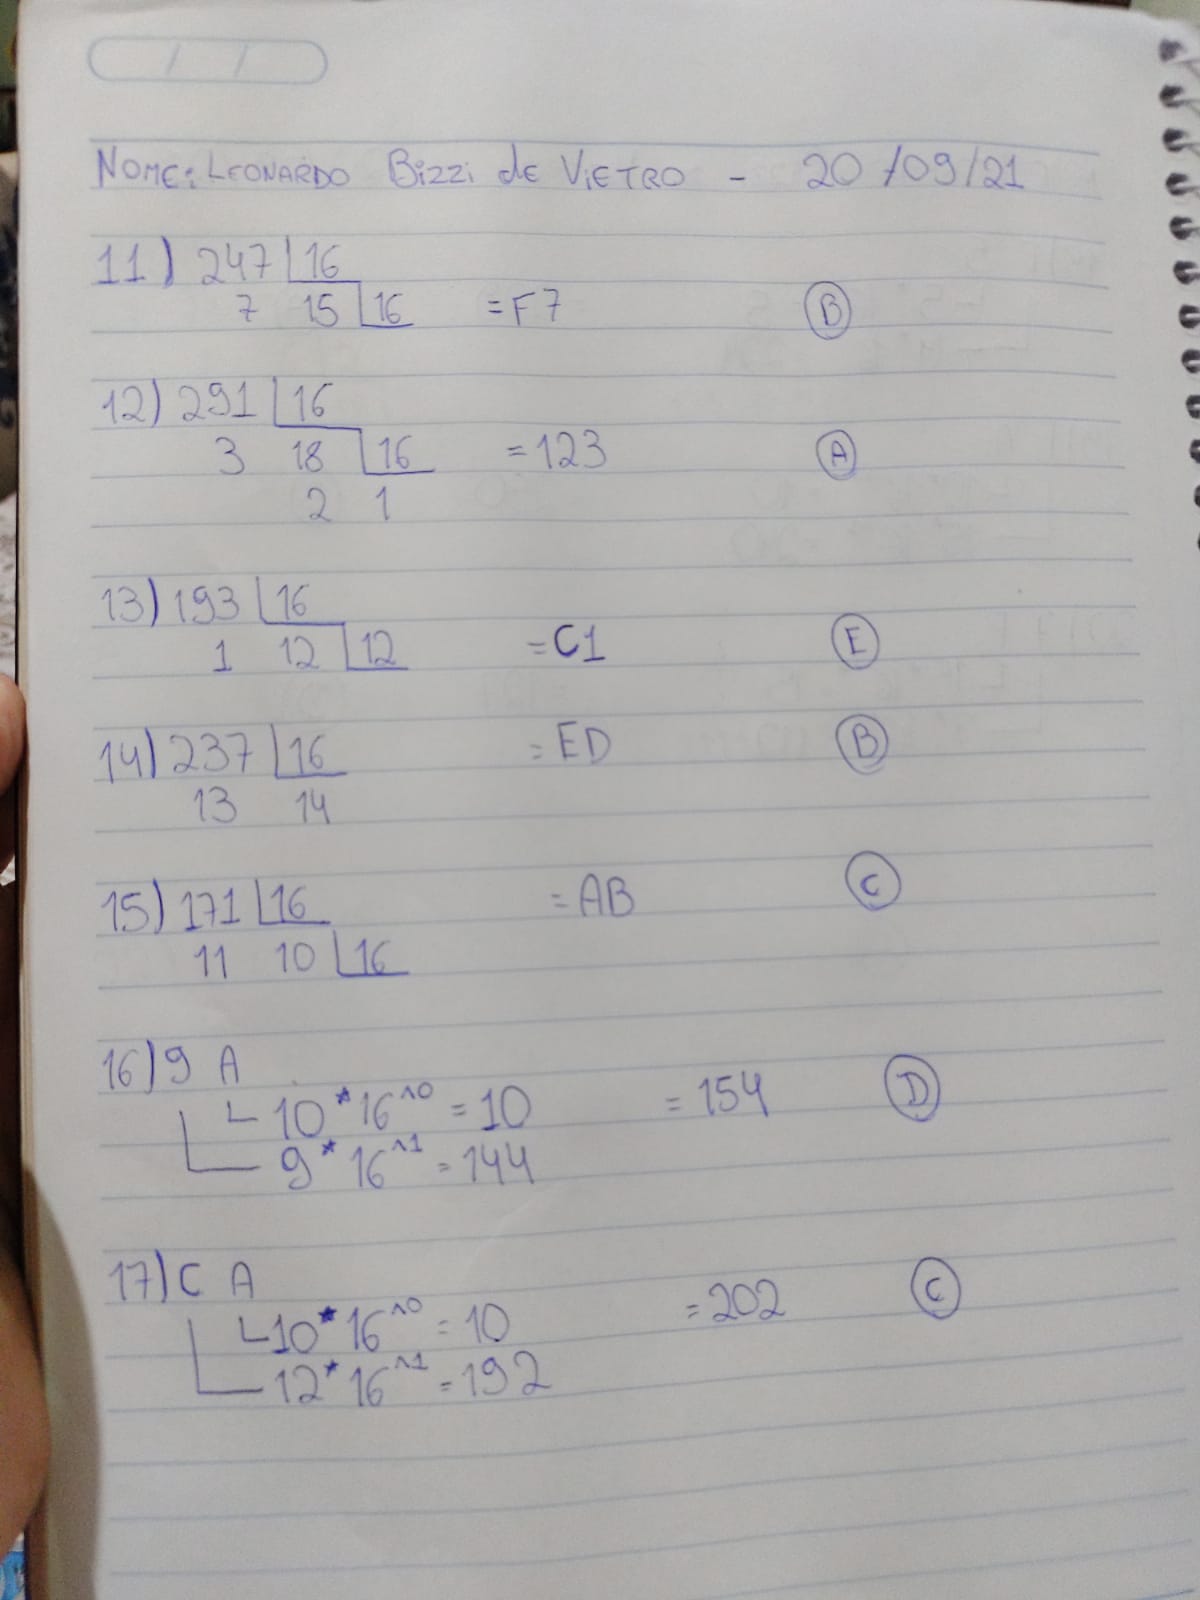 NOME: LEONARDO Bizzi dE ViETRO - 20/09/21
11) 247 16
7 15 16 = F7 B
12) 291 16
3 18 16 = 123 A
2 1
13) 193 16
1 12 12 = C1 E
14) 237 16 = ED B
13 14
15) 171 16 = AB C
11 10 16
16) 9 A
10*16^0 = 10 = 154 D
9*16^1 = 144
17) C A
10*16^0 = 10 = 202 C
12*16^1 = 192